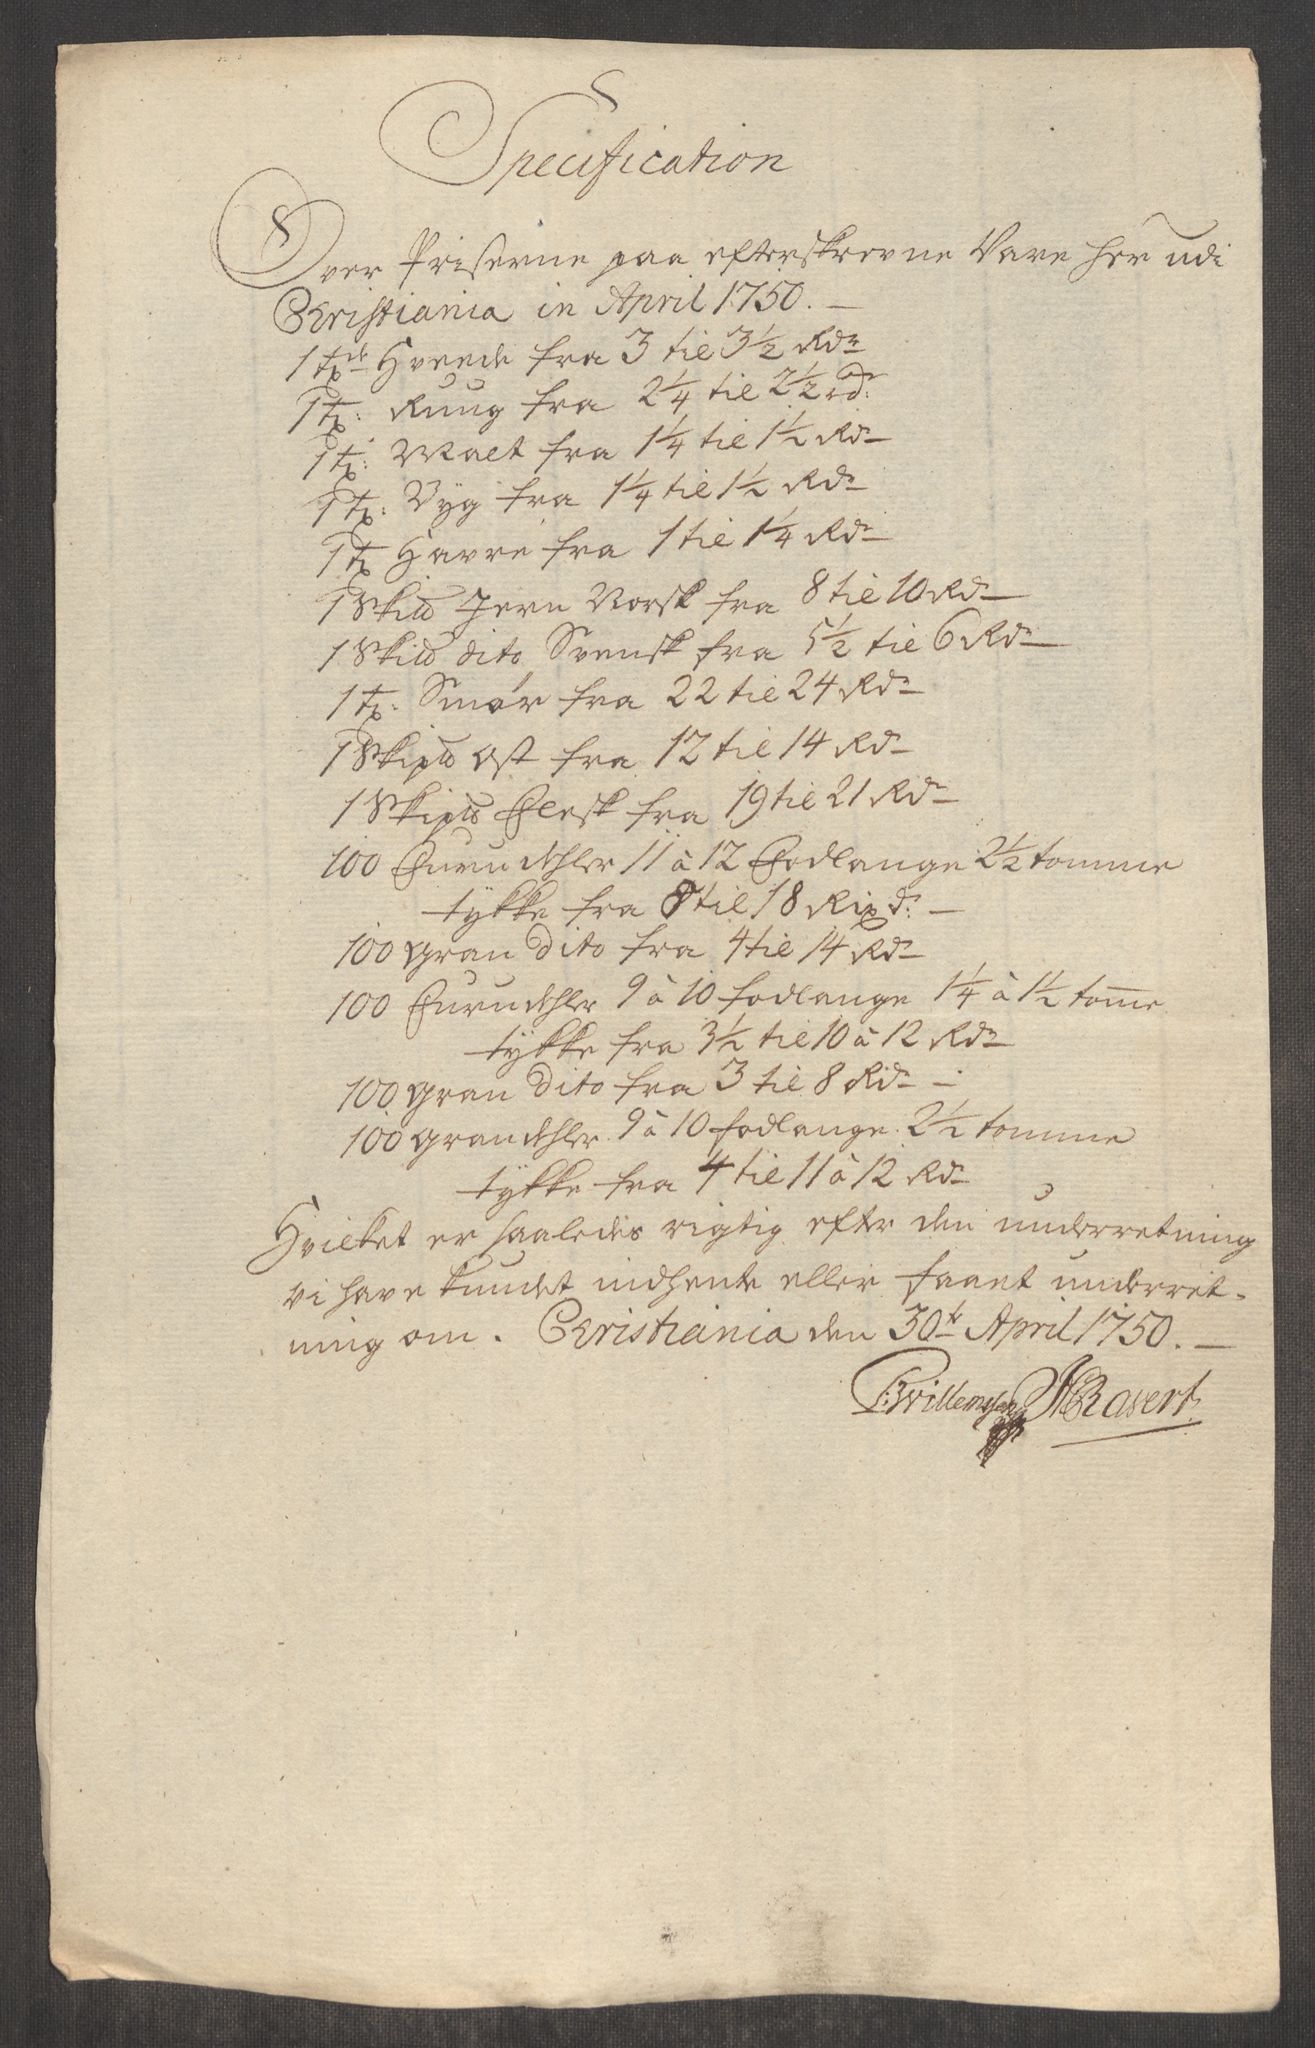 Specification
Over Priserne paa efterskrevne Vare her udi
Christiania in April 1750. —
1 tde Hveede fra 3 til 3½ Rdr
1 t: Ruug fra 2¼ til 2½ rd:
1 t: Malt fra 1¼ til 1½ Rdr
1 t: Byg fra 1¼ til 1½ Rdr
1 t Havre fra 1 til 1¼ Rdr
1 Sk℔ Jern Norsk fra 8 til 10 Rdr
1 Sk℔ dito Svensk fra 5½ til 6 Rdr
1 t: Smör fra 22 til 24 Rdr
1 Skip℔ Ost fra 12 til 14 Rdr
1 Skip℔ Flesk fra 19 til 21 Rdr
100 Furudehler 11 à 12 Fodlange 2½ tomme
tykke fra 8 til 18 Rixd: —
100 Gran dito fra 4 til 14 Rdr
100 Furudehler 9 à 10 fodlange 1¼ à 1½ tom̅e
tykke fra 3½ til 10 à 12 Rdr
100 Gran dito fra 3 til 8 Rdr —
100 Grandehler 9 à 10 fodlange 2½ tomme
tykke fra 4 til 11 à 12 Rdr
Hvilket er saaledes rigtig efter den underretning
vi have kundet indhente eller faaet underret-
ning om. Christiania den 30te April 1750. —
Willemsen Ravert